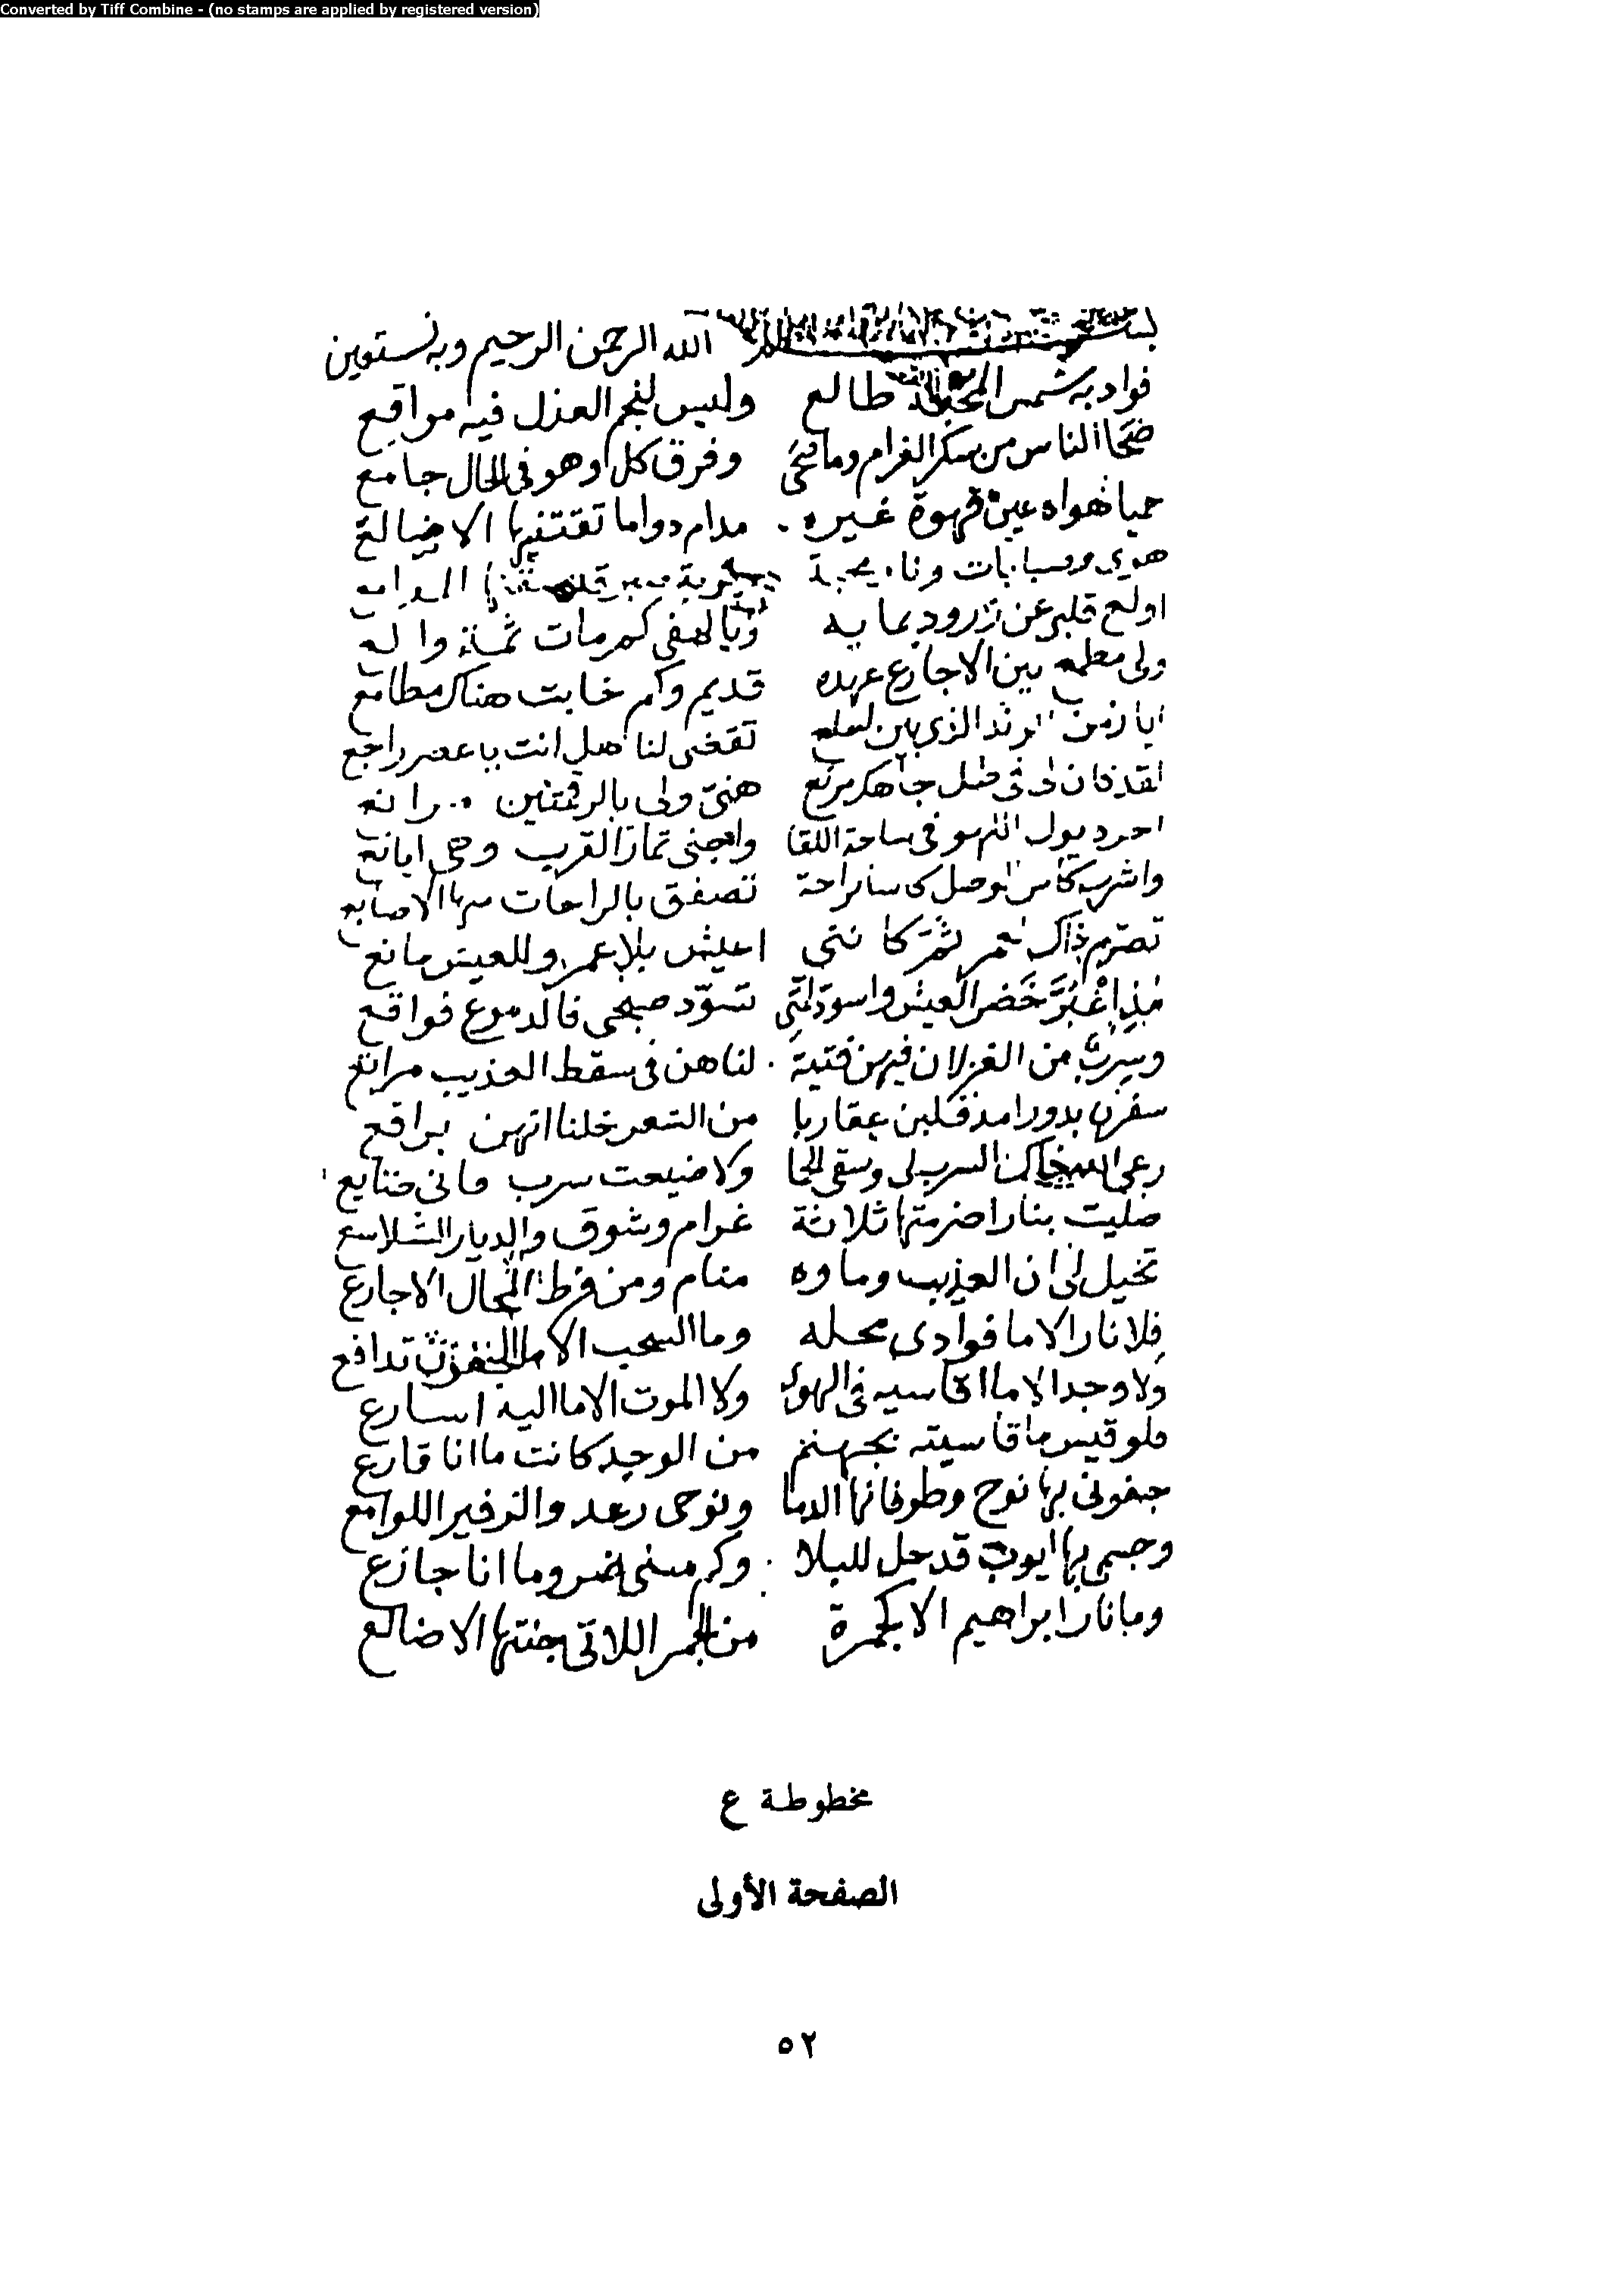 Converted by Tiff Combine - (no stamps are applied by registered version)
الله الرحمن الرحيم وبه نستعين
فواد به شمس المحبة طالع وليس لنجم العذل فيه مواقع
صحا الناس من سكر الغرام وما صحى وفرق كل وهو في الحال جامع
حميا هواه عين قهوة غيره مدام دواما تقتنيها الاضالع
هوى وصبابات ونار محبة
اولع قلبي عن زرود بمايه ويا لهفي كم مات ثمة والع
ولى مطمع بين الاجارع عهده قديم وكم خابت هناك مطامع
ايا زمن الرند الذي بين لعلع تقضى لنا هل انت يا عصر راجع
لقد كان لي في ظل جاهك مرتع هني ولى بالرقمتين مرابع
اجر ذيول اللهو في ساحة اللقا واجني ثمار القرب وهي ايانع
واشرب كاس الوصل صفا براحة تصفق بالراحات منها الاصابع
تصرم ذاك العمر كانني اعيش بلا عمر وللعيش مانع
مذ اغبر خضر العيش واسود لمتي تسود صبحي فالدموع فواقع
وسرب من الغزلان فيهن فتية لنا هن في سقط العذيب مراتع
سفرن بدورا مذ قلبن عقاربا من الشعر خلنا انهن براقع
رعى الله ذاك السرب لي وسقى الحما ولا ضيعت سرب فاني ضايع
صليت بنار اضرمتها ثلاثة غرام وشوق والديار الشلاسع
تخيل لي ان العذيب وماوه منام ومن فرط المحال الاجارع
فلا نار الا ما فوادي محله وما السحب الا ما الجفون تدافع
ولا وجد الا ما اقاسيه في الهوى ولا الموت الا ما اليه اسارع
فلو قيس ما قاسيته بجهنم من الوجد كانت ما انا قارع
جفوني بها نوح وطوفانها الدما ونوحى رعد والزفير اللوامع
وجسمي بها ايوب قد حل للبلا وكم مسني ضر وما انا جازع
وما نار ابراهيم الا كجمرة من الجمر اللاتي جنتها الاضالع
مخطوطة ع
الصفحة الأولى
٥٢